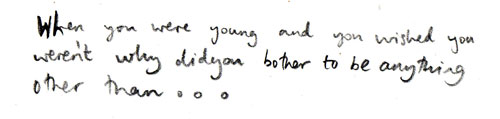 When you were young and you wished you
weren't why didyou bother to be anything
other than . . .